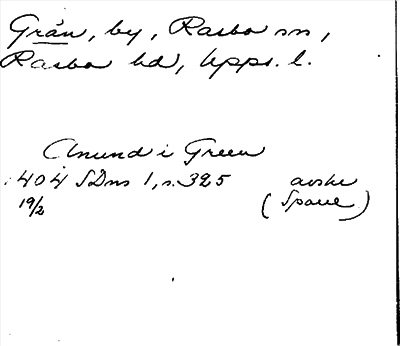 Grån, by, Rasbo sn,
Rasbo hd, Upps. l.
Anund i Green
1404 SDns 1, s. 325 avskr
19/2 (Spaue)